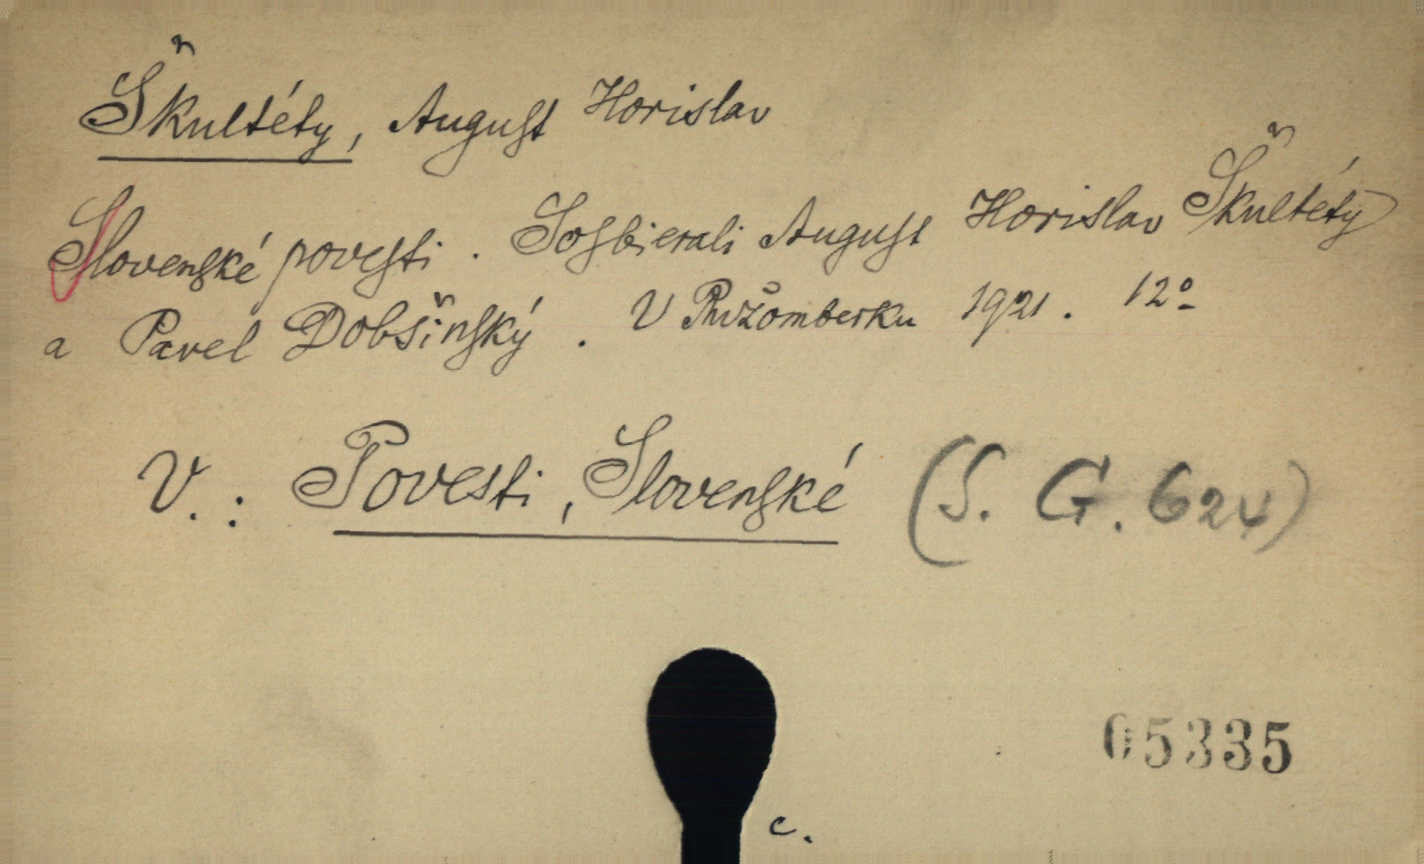 Škultéty, August Horislav
Slovenské povesti. Sosbierali August Horislav Škultéty
a Pavel Dobšinský. V Ružomberku 1921. 12º
V.: Povesti, Slovenské (S. G. 624)
05335
c.